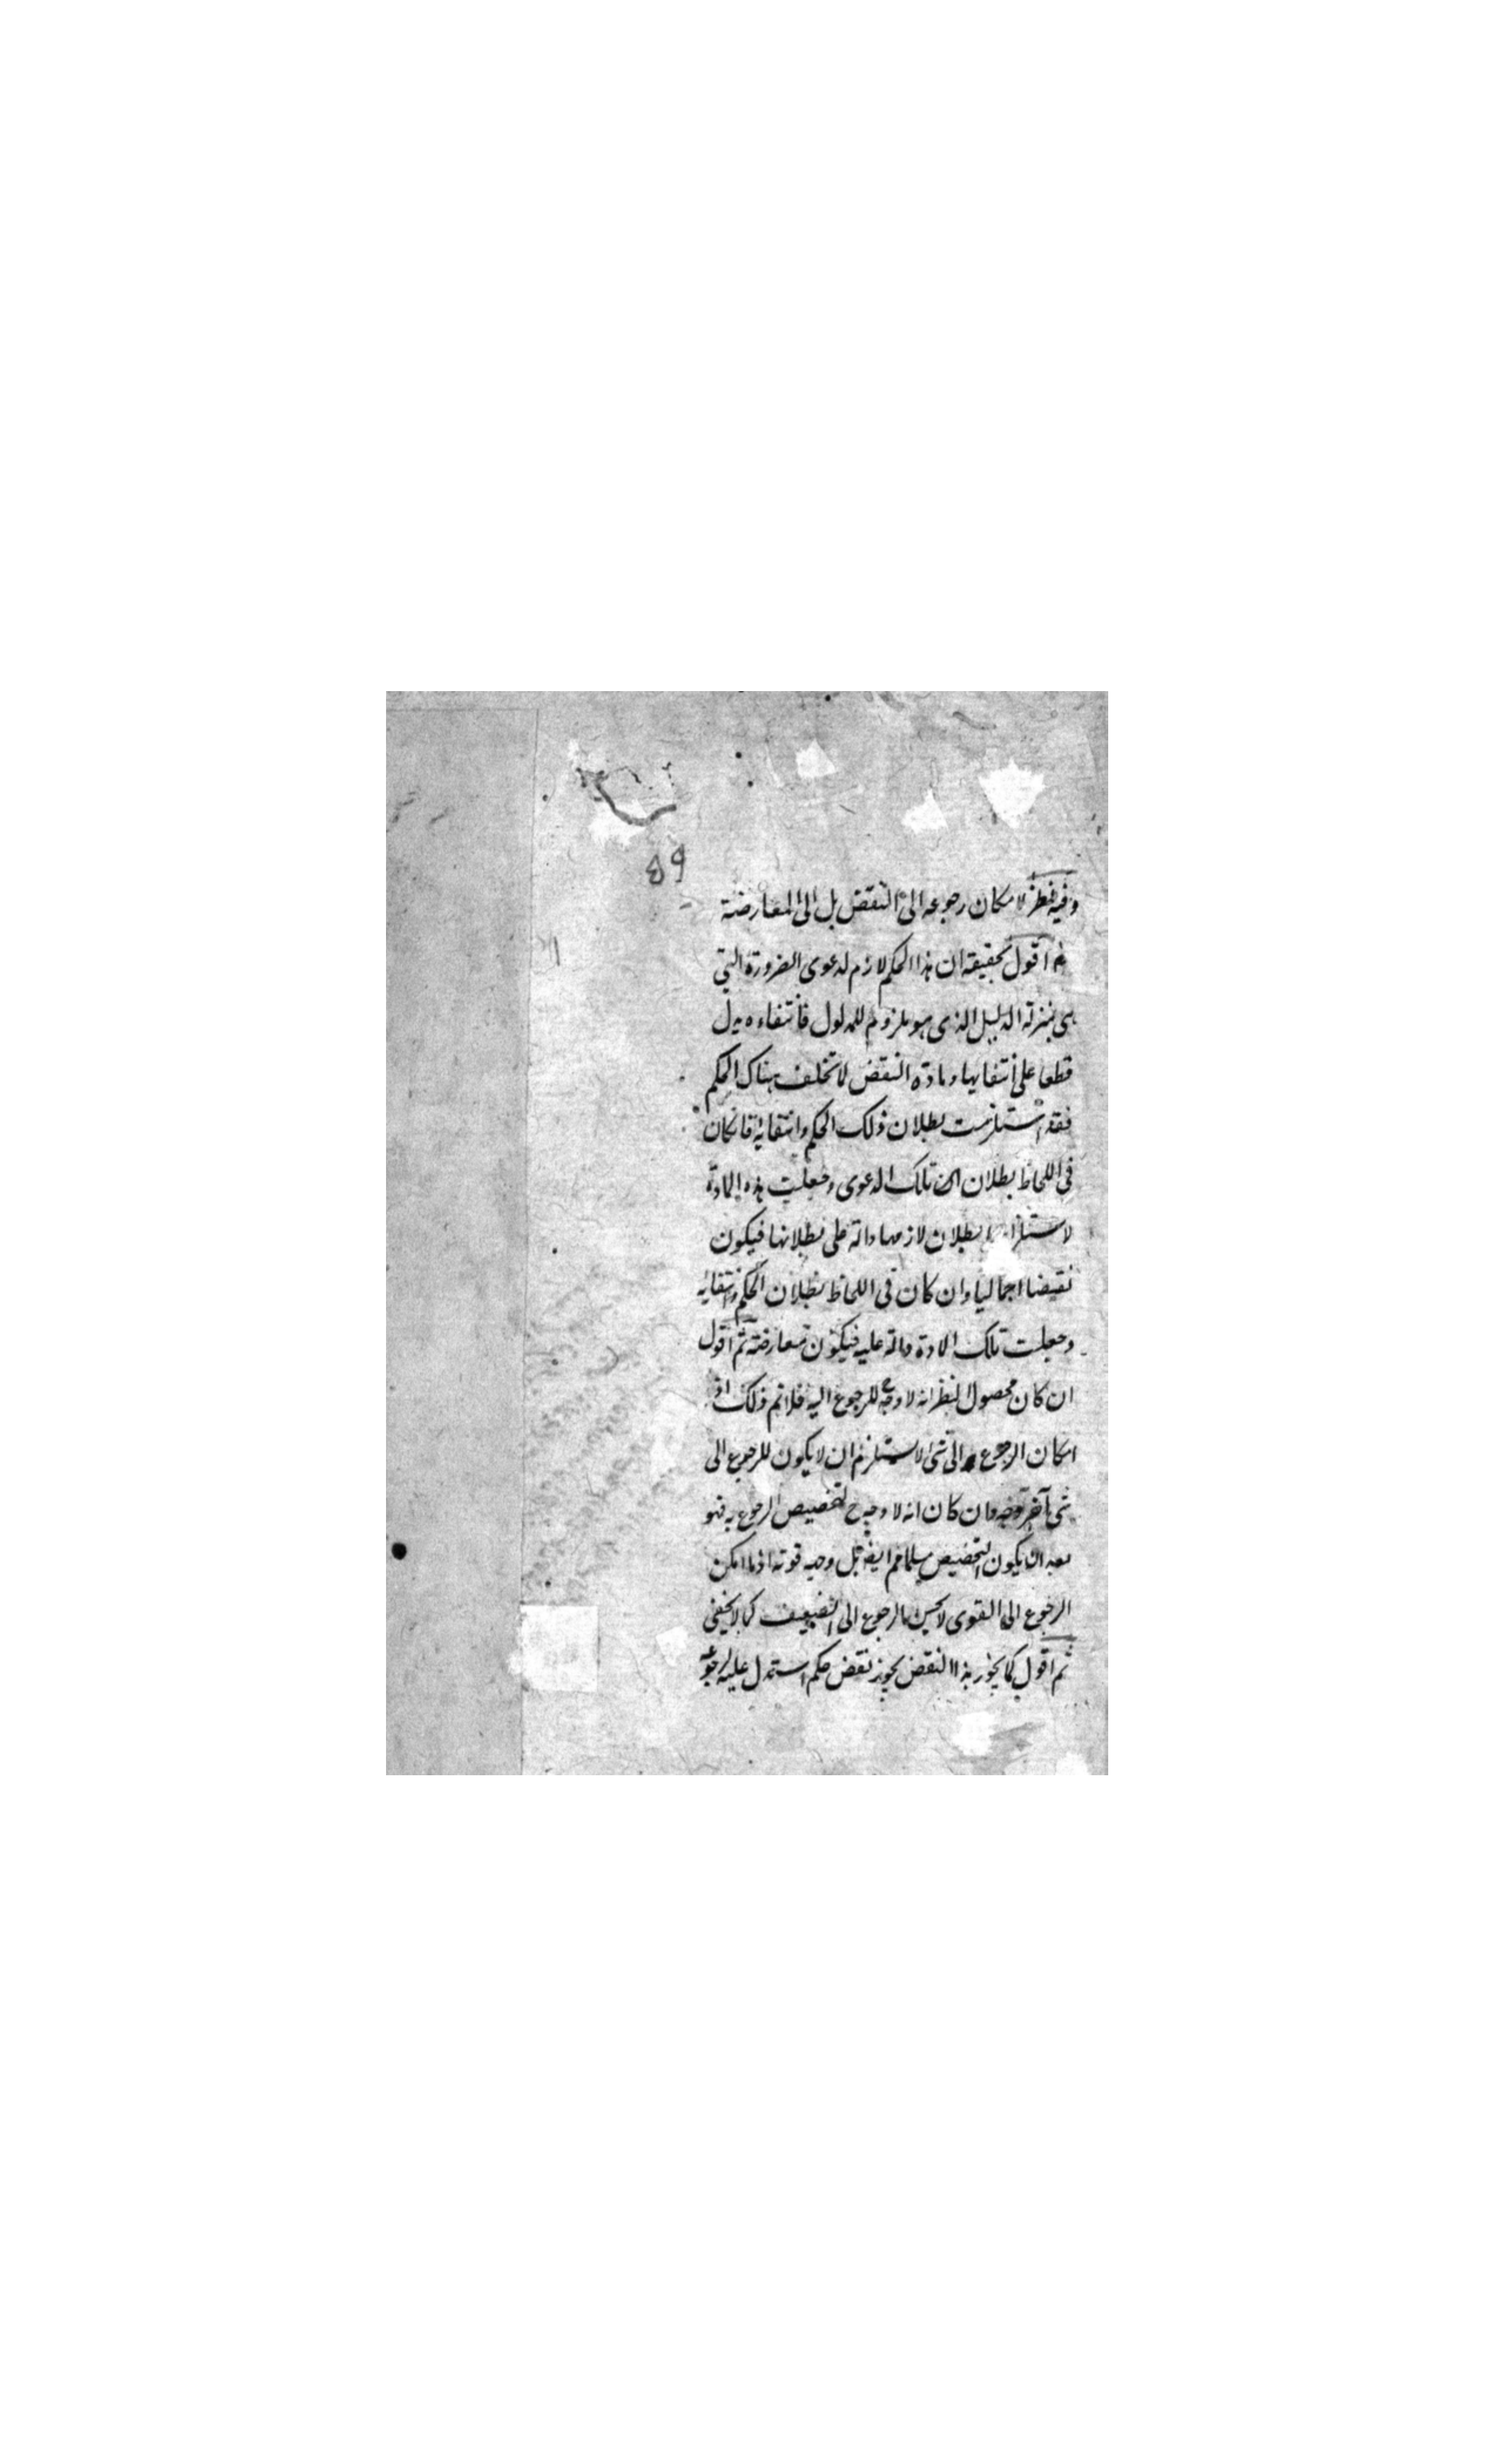 ٥٩
وفيه نظر لامكان رجوعه الى النقض بل الى المعارضة
ثم اقول تحقيقه ان هذا الحكم لازم لدعوى الضرورة التي
هى بمنزلة الدليل الذى هو ملزوم للمدلول فانتفاءه يدل
قطعا على انتفايها ومادة النقض لا تخلف هناك الحكم
فقد استلزمت بطلان ذلك الحكم وانتفائه فانكان
فى اللحاظ بطلان تلك الدعوى وجعلت هذه المادة
بطلان لازمها دالة على بطلانها فيكون
نقيضا اجماليا وان كان فى اللحاظ بطلان الحكم وانتفايه
وجعلت تلك المادة دالة عليه فيكون معارضة ثم اقول
ان كان محصول النظر انه لا وجه للرجوع اليه فلا تم ذلك اذ
امكان الرجوع الى شئ لا يستلزم ان لا يكون للرجوع الى
شئ آخر وجه وان كان انه لا وجه ح لتخصيص الرجوع به فهو
بعد ان يكون التخصيص مسلما مم ايضا بل وجهه قوته اذ ما امكن
الرجوع الى القوى لا يحسن الرجوع الى الضعيف كما لا يخفى
ثم اقول كما يجوز هذا النقض يجوز نقض حكم استدل عليه لرجوعه